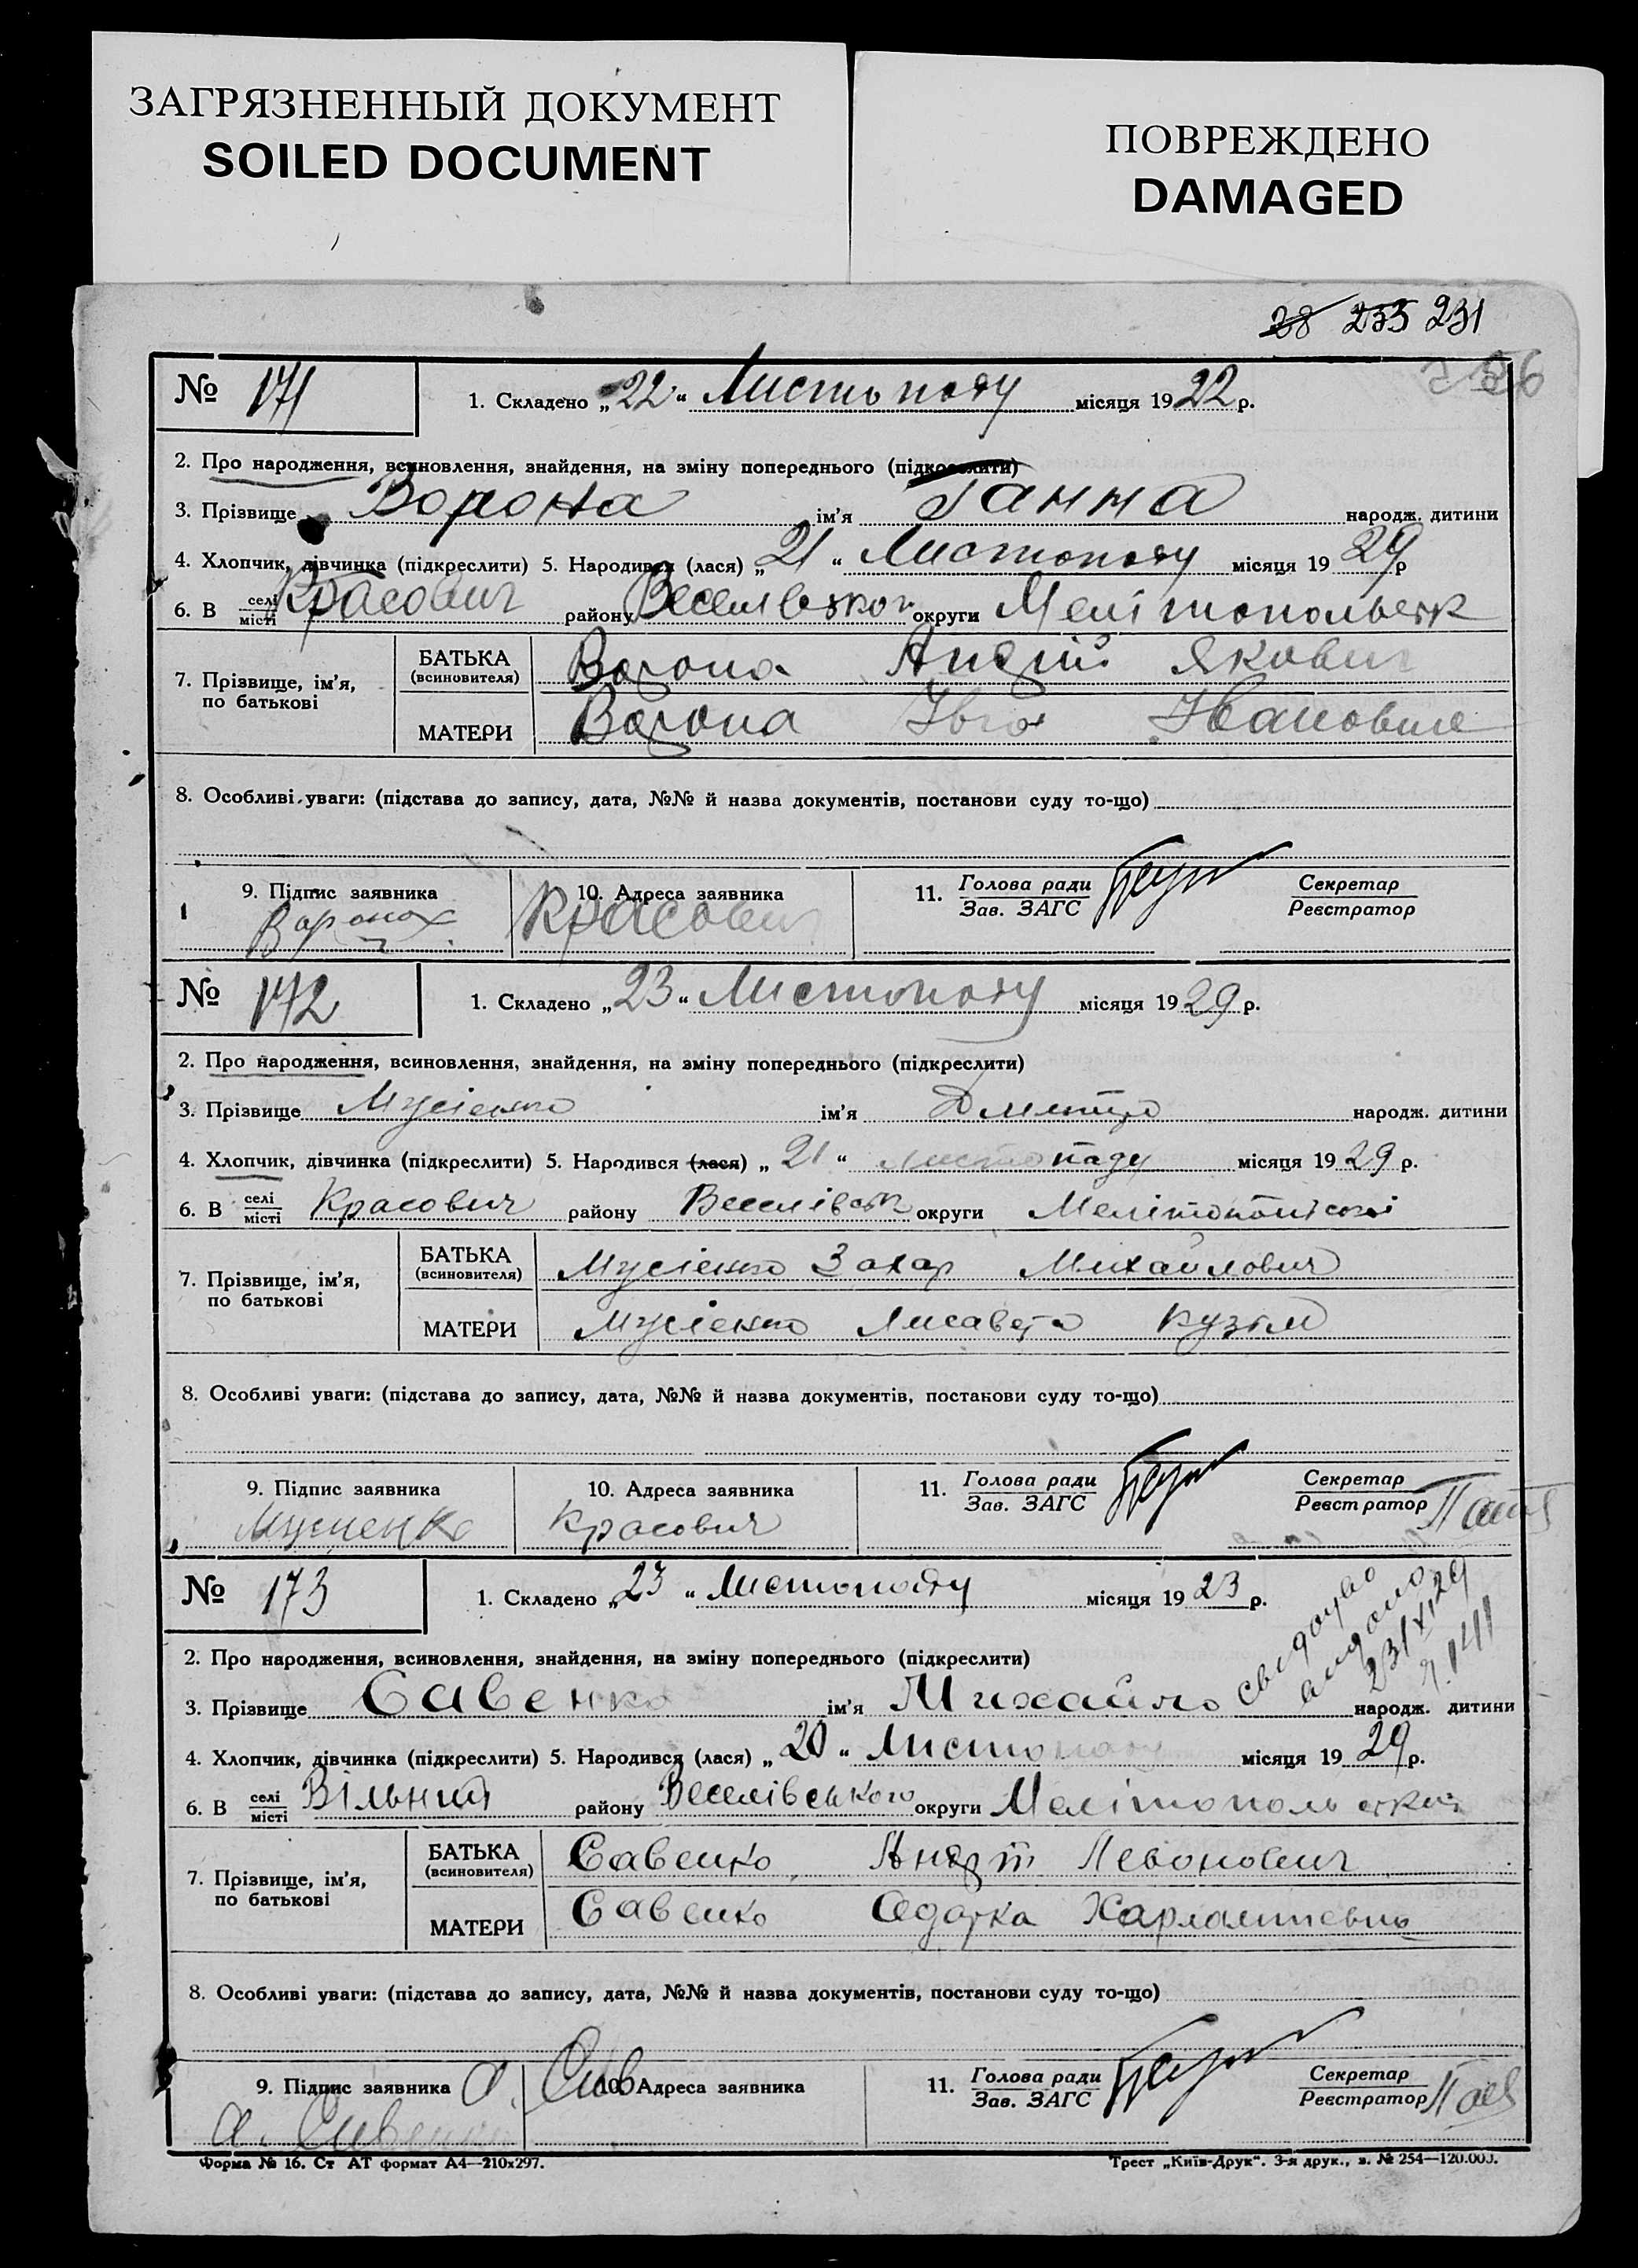 ЗАГРЯЗНЕННЫЙ ДОКУМЕНТ
SOILED DOCUMENT
ПОВРЕЖДЕНО
DAMAGED
28 233 231
№ 171
1. Складено „22“ Листопаду місяця 1922 р.
2. Про народження, всиновлення, знайдення, на зміну попереднього (підкреслити)
3. Прізвище Ворона ім'я Ганна народж. дитини
4. Хлопчик, дівчинка (підкреслити) 5. Народився (лася) „21“ Листопаду місяця 1929 р
6. В селі місті Красович району округи Мелітопольськ
7. Прізвище, ім'я, по батькові
БАТЬКА (всиновителя) Ворона Андрій Якович
МАТЕРИ Ворона Івга
8. Особливі уваги: (підстава до запису, дата, №№ й назва документів, постанови суду то-що)
9. Підпис заявника
10. Адреса заявника Красович
11. Голова ради Зав. ЗАГС
Секретар Реєстратор
№ 172
1. Складено „23“ Листопаду місяця 1929 р.
2. Про народження, всиновлення, знайдення, на зміну попереднього (підкреслити)
3. Прізвище Мусієнко ім'я Дмитро народж. дитини
4. Хлопчик, дівчинка (підкреслити) 5. Народився (лася) „21“ Листопаду місяця 1929 р.
6. В селі місті Красович району Веселівськ округи
7. Прізвище, ім'я, по батькові
БАТЬКА (всиновителя) Мусієнко Захар Михайлович
МАТЕРИ Мусієнко Лисавета Кузім
8. Особливі уваги: (підстава до запису, дата, №№ й назва документів, постанови суду то-що)
9. Підпис заявника Мусиенко
10. Адреса заявника Красович
11. Голова ради Зав. ЗАГС
Секретар Реєстратор
№ 173
1. Складено „23“ Листопаду місяця 1923 р.
2. Про народження, всиновлення, знайдення, на зміну попереднього (підкреслити)
3. Прізвище Савенко ім'я Михайло народж. дитини
23/XI 29
4. Хлопчик, дівчинка (підкреслити) 5. Народився (лася) „20“ Листопаду місяця 1929 р.
6. В селі місті Вільний району Веселівського округи
7. Прізвище, ім'я, по батькові
БАТЬКА (всиновителя) Савенко Андрій Левонович
МАТЕРИ Савенко Одарка
8. Особливі уваги: (підстава до запису, дата, №№ й назва документів, постанови суду то-що)
9. Підпис заявника А. Сав
А. Савенко
10. Адреса заявника
11. Голова ради Зав. ЗАГС
Секретар Реєстратор
Форма № 16. Ст АТ формат А4—210х297.
Трест „Київ-Друк“. 3-я друк., з. № 254—120.000.